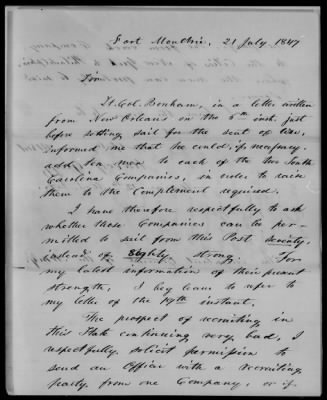 Fort Moultrie, 21 July 1847
Sir,
Lt. Col. Bonham, in a letter written
from New Orleans on the 5th inst. just
before setting sail for the seat of War,
informed me that he could, if necessary,
add ten men to each of the two South
Carolina Companies, in order to raise
them to the Complement required.
I have therefore respectfully to ask
whether those Companies can be per-
mitted to sail from this Post seventy,
instead of Eighty strong. For
my latest information of their present
strength, I beg leave to refer to
my letter of the 19th instant.
The prospect of recruiting in
this State continuing very bad, I
respectfully solicit permission to
send an Officer with a recruiting
party from one Company, or if